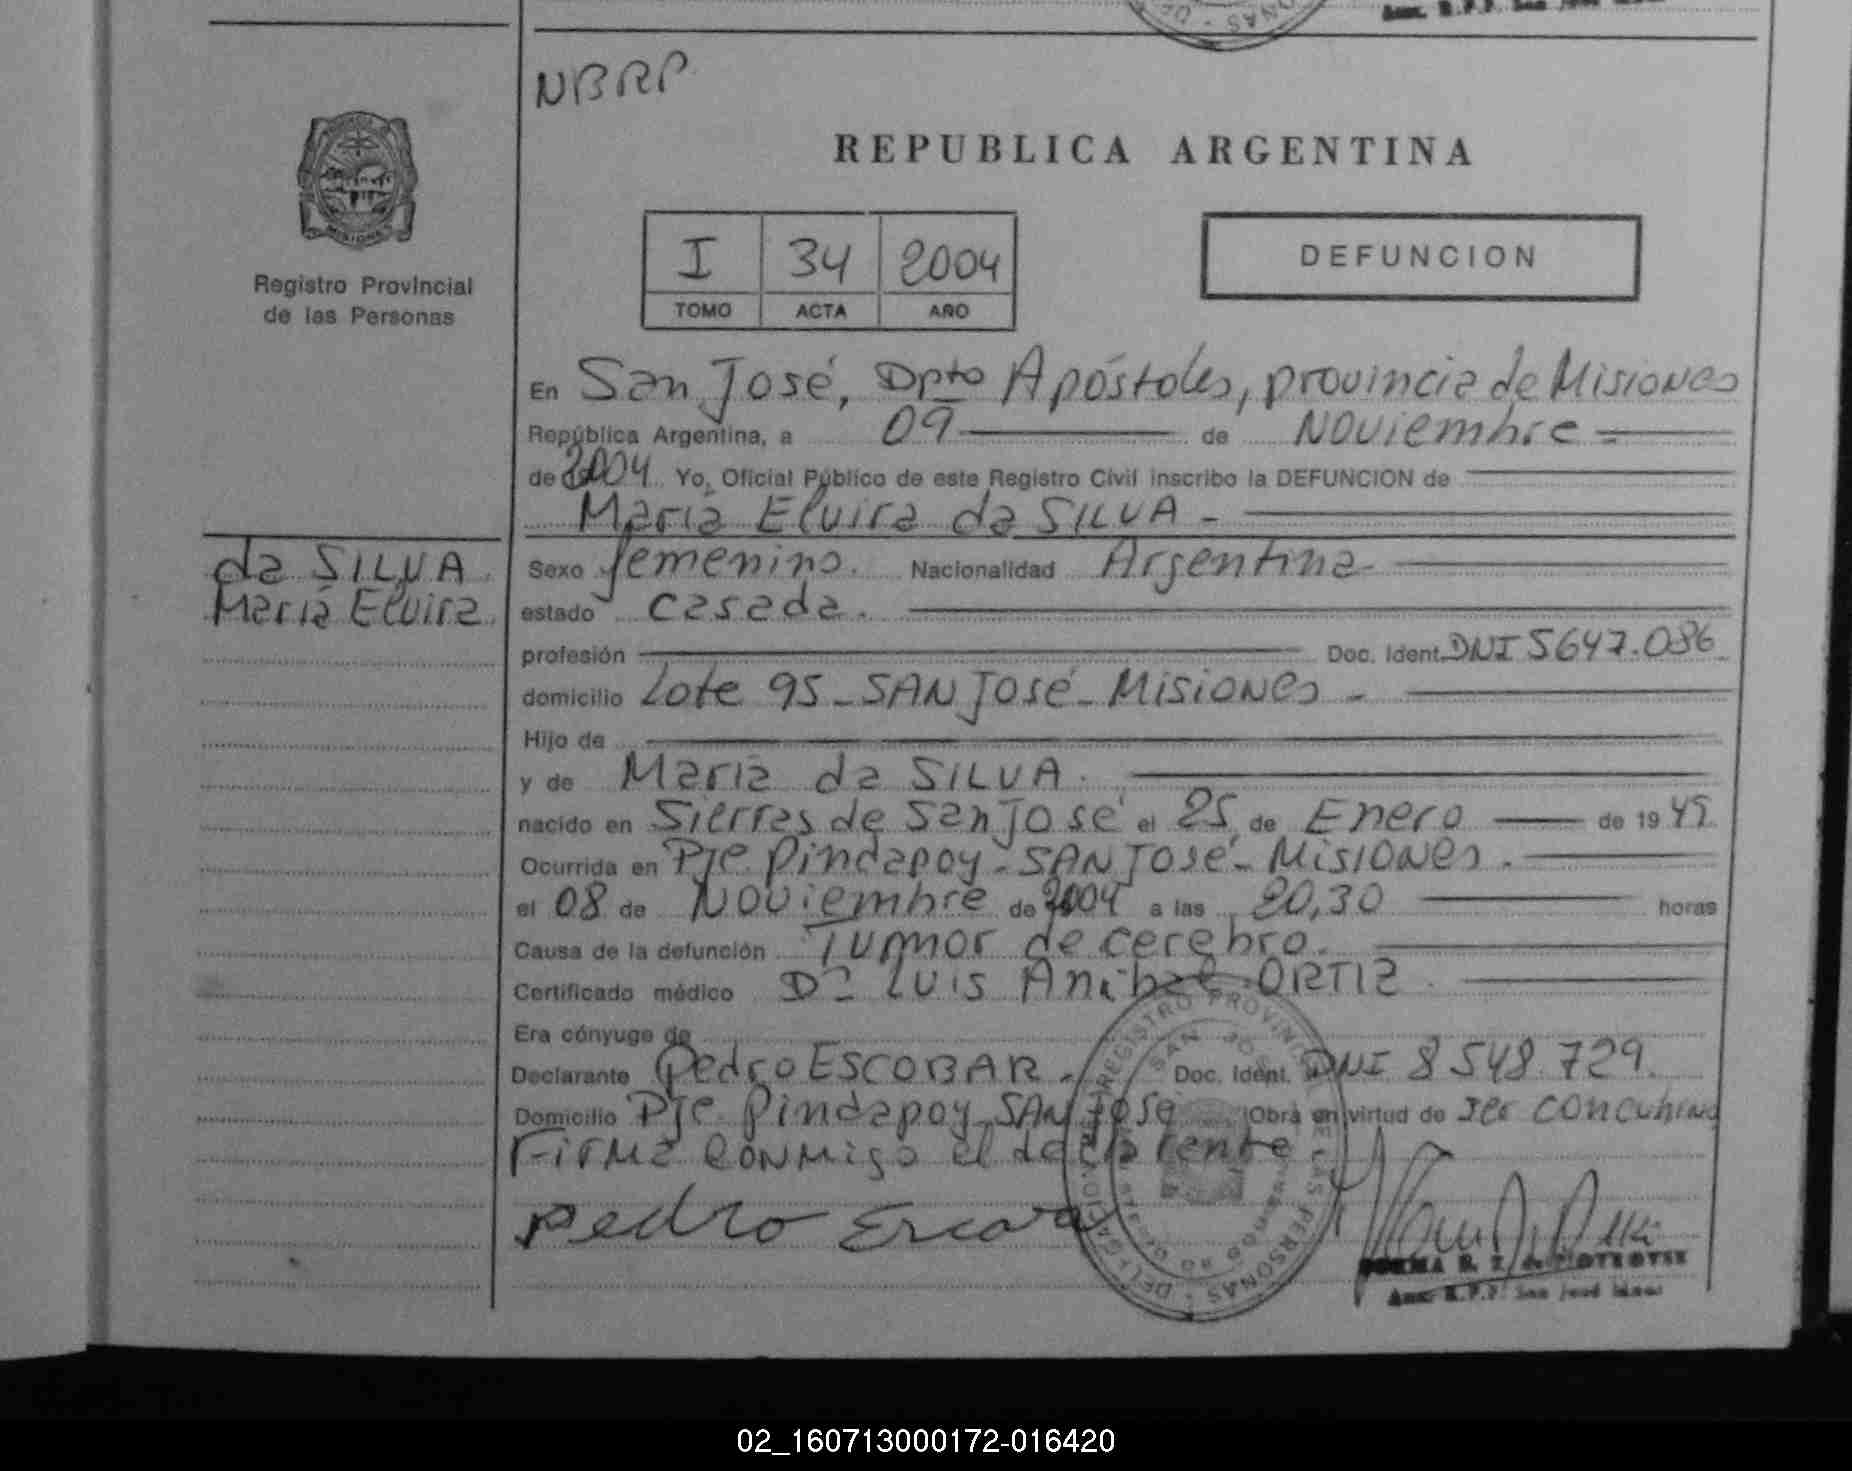 NBRP
REPUBLICA ARGENTINA
I 34 2004
TOMO ACTA AÑO
DEFUNCION
Registro Provincial
de las Personas
En San José, Dpto Apóstoles, provincia de Misiones
República Argentina, a 09 de Noviembre
de 2004 Yo, Oficial Público de este Registro Civil inscribo la DEFUNCION de
Maria Elvira da SILVA
da SILVA
Maria Elvira
Sexo femenino. Nacionalidad Argentina
estado casada.
profesión Doc. Ident. DNI 5647.086
domicilio Lote 95 - SAN José - Misiones -
Hijo de
y de Maria da SILVA.
nacido en Sierras de San José el 25 de Enero de 19 49
Ocurrida en Pje Pindapoy - SAN José - Misiones.
el 08 de Noviembre de 2004 a las 20,30 horas
Causa de la defunción Tumor de cerebro.
Certificado médico Dr LUIS Anibal ORTIZ
Era cónyuge de
Declarante Pedro ESCOBAR. Doc. Ident. DNI 8548.729.
Domicilio Pje Pindapoy - SAN José Obra en virtud de ser concubino
Firma conmigo el declarente
Pedro Escobar
REGISTRO PROVINCIAL DE LAS PERSONAS
SAN JOSE
Aux. R.P.P. San José Mnes
02_160713000172-016420